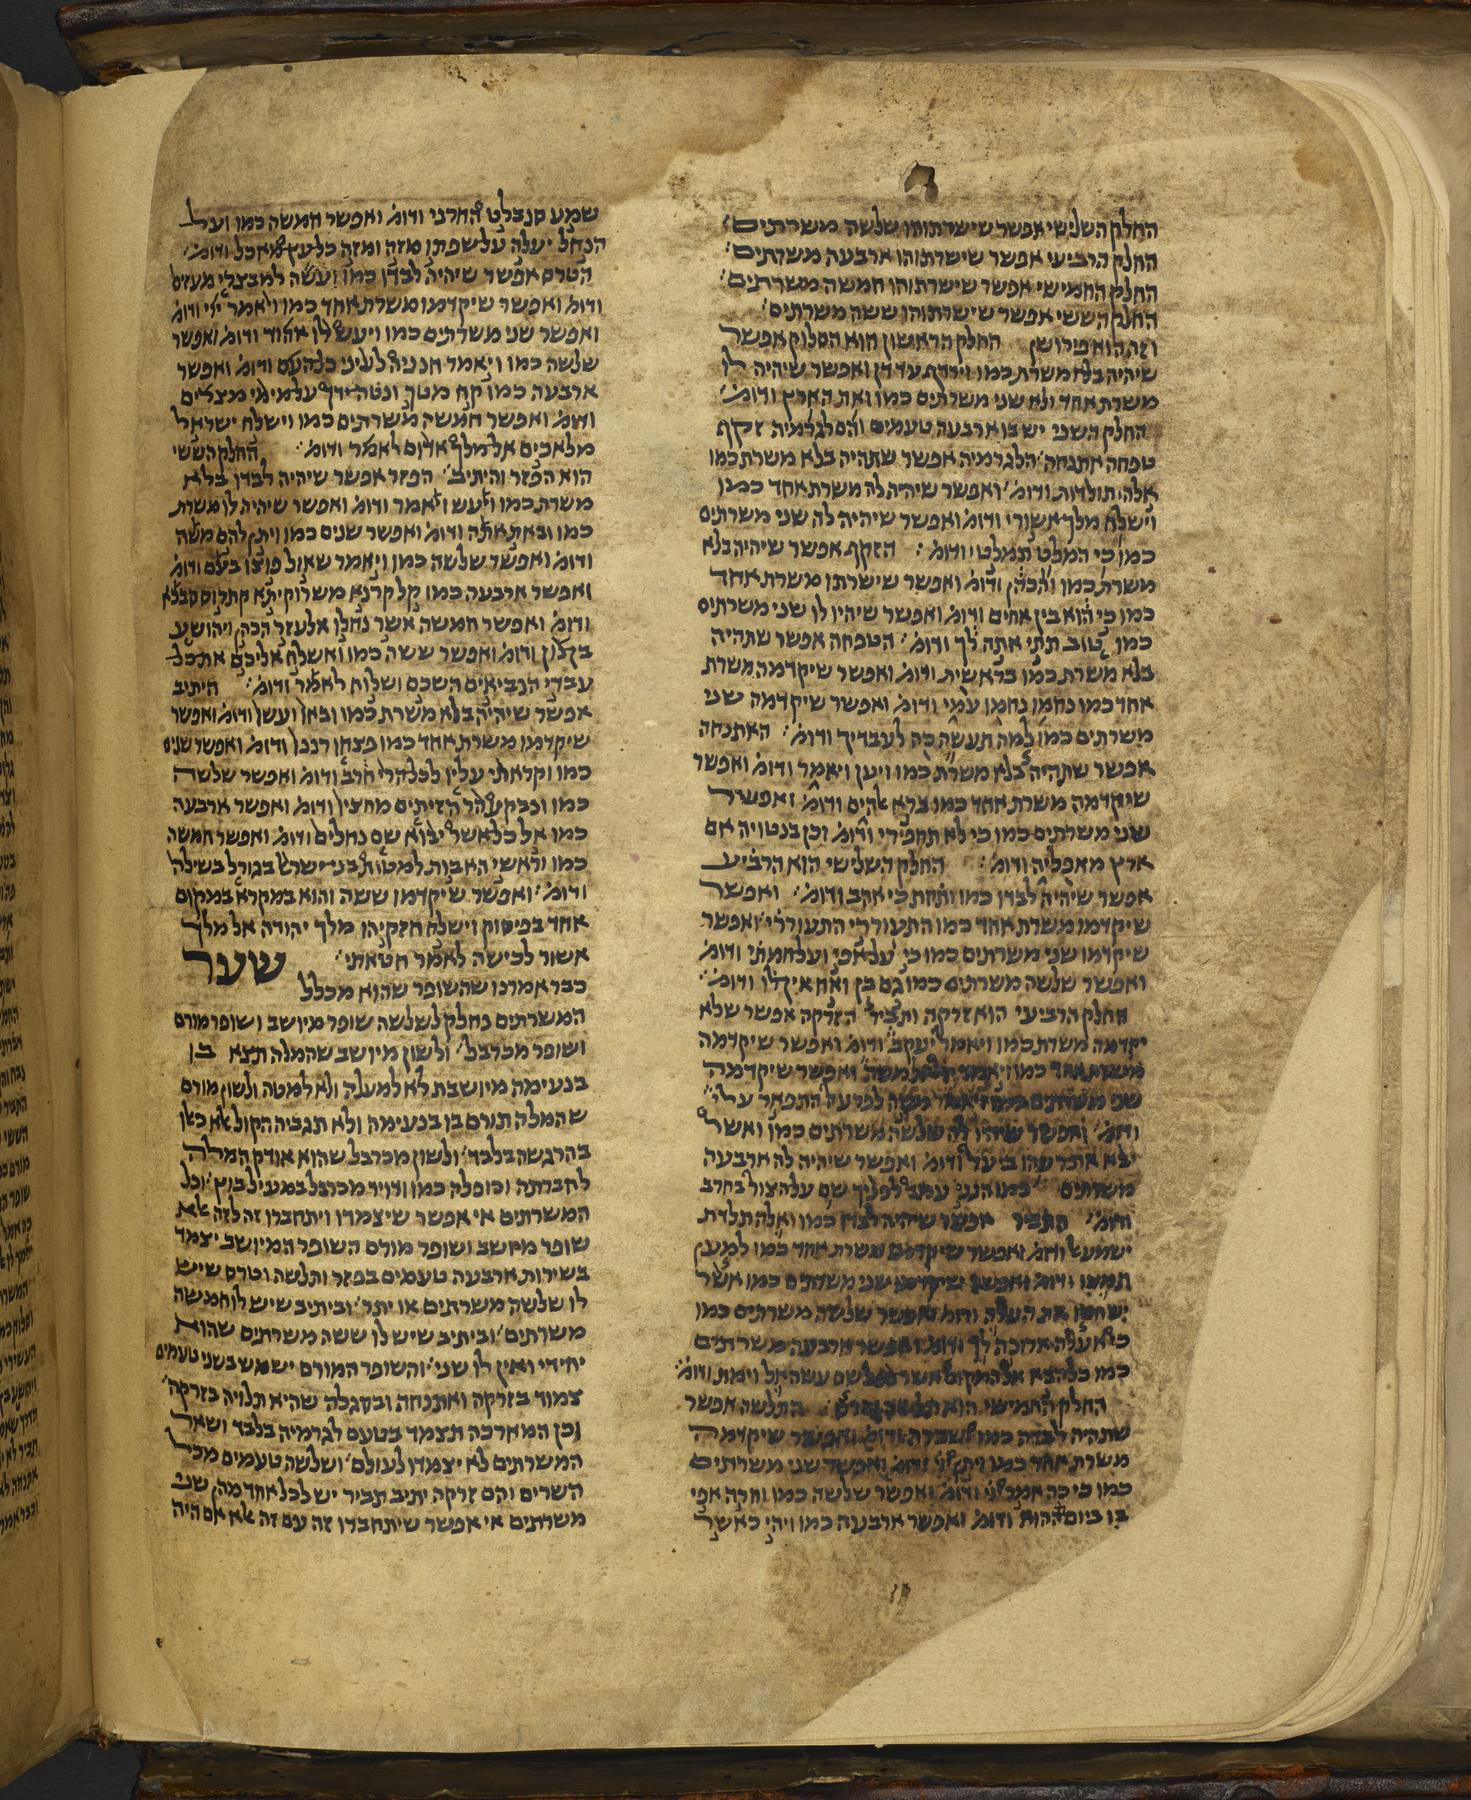 החלק השלישי אפשר שישרתוהו שלשה משרתים׃
החלק הרביעי אפשר שישרתוהו ארבעה משרתים׃
החלק החמישי אפשר שישרתוהו חמשה משרתים׃
החלק הששי אפשר שישרתוהו ששה משרתים׃
וזה הוא פירושן החלק הראשון הוא הסלוק אפשר
שיהיה בלא משרת כמו וירדף עד דן ואפשר שיהיה לו
משרת אחד ולא שני משרתים כמו ואת הארץ ודומ׳
החלק השני יש בו ארבעה טעמים והם לגרמיה זקף
טפחה אתנחה׳ הלגרמיה אפשר שתהיה בלא משרת כמו
אלה תולדות ודומ׳ ואפשר שיהיה לה משרת אחד כמו
וישלח מלך אשורי ודומ׳ ואפשר שיהיה לה שני משרתים
כמו כי המלט תמלטי ודומ׳׃ הזקף אפשר שיהיה בלא
משרת כמו והכהן ודומ׳ ואפשר שישרתו משרת אחד
כמו כי הוא בין אחים ודומ׳ ואפשר שיהיו לו שני משרתים
כמו טוב תתי אתה לך ודומ׳׃ הטפחה אפשר שתהיה
בלא משרת כמו בראשית ודומ׳ ואפשר שיקדמה משרת
אחד כמו נחמו נחמו עמי ודומ׳ ואפשר שיקדמה שני
משרתים כמו למה תעשה כה לעבדיך ודומ׳׃ האתנחה
אפשר שתהיה בלא משרת כמו ויען ויאמר ודומ׳ ואפשר
שיקדמה משרת אחד כמו ברא אלהים ודומ׳ ואפשר
שני משרתים כמו כי לא תחפירי ודומ׳ וכן בנטויה אם
ארץ מאפליה ודומ׳׃ החלק השלישי הוא הרביע
אפשר שיהיה לבדו כמו ותחת כי אהב ודומ׳׃ ואפשר
שיקדמו משרת אחד כמו התעוררי התעוררי׳ ואפשר
שיקדמו שני משרתים כמו כי על אפי ועל חמתי ודומ׳
ואפשר שלשה משרתים כמו גם בן ואח אין לו ודומ׳׃
חלק הרביעי הוא זרקה ותביר׳ הזרקה אפשר שלא
יקדמה משרת כמו ויאמר יעקב ודומ׳ ואפשר שיקדמה
משרת אחד כמו ויאמר משה ואפשר שיקדמה
שני משרתים כמו ויאמר משה לפרעה התפאר עלי
ודומ׳ ואפשר שיהיו לה שלשה משרתים כמו ואשר
יבא את רעהו ביער ודומ׳ ואפשר שיהיה לה ארבעה
משרתים כמו הנני עמד לפניך שם על הצור בחרב
ודומ׳ התביר אפשר שיהיה לבדו כמו ואלה תלדת
ישמעאל ודומ׳ ואפשר שיקדמו משרת אחד כמו למען
ודומ׳ ואפשר שיקדמו שני משרתים כמו אשר
ישחטו את העלה ודומ׳ ואפשר שלשה משרתים כמו
ארוכה לך ודומ׳ ואפשר ארבעה משרתים
כמו אל המקום אשר שם עשהאל וימת ודומ׳׃
החלק החמישי הוא התלשה אפשר
שתהיה לבדה כמו ודומ׳ ואפשר שיקדמה
משרת אחד כמו ודומ׳ ואפשר שני משרתים
כמו כי כה אמר ודומ׳ ואפשר שלשה כמו וחרה אפי
בו ביום ההוא ודומ׳ ואפשר ארבעה כמו ויהי כאשר
שמע סנבלט החרני ודומ׳ ואפשר חמשה כמו ועל
הנחל יעלה על שפתו מזה ומזה כל עץ מאכל ודומ׳׃
הטרס אפשר שיהיה לבדו כמו ועשה למבצרי מעזים
ודומ׳ ואפשר שיקדמו משרת אחד כמו ויאמר ייי ודומ׳
ואפשר שני משרתים כמו ויעש לו אהוד ודומ׳ ואפשר
שלשה כמו ויאמר חנניה לעיני כל העם ודומ׳ ואפשר
ארבעה כמו קח מטך ונטה ידך על מימי מצרים
ודומ׳ ואפשר חמשה משרתים כמו וישלח ישראל
מלאכים אל מלך אדום לאמר ודומ׳׃ החלק הששי
הוא הפזר והיתיב׳ הפזר אפשר שיהיה לבדו בלא
משרת כמו ויעש ויאמר ודומ׳ ואפשר שיהיה לו משרת
כמו ובאת אתה ודומ׳ ואפשר שנים כמו ויתן להם משה
ודומ׳ ואפשר שלשה כמו ויאמר שאול פוצו בעם ודומ׳
ואפשר ארבעה כמו קל קרנא משרוקיתא קתרוס סבלא
ודומ׳ ואפשר חמשה אשר נחלו אלעזר הכהן ויהושע
בן נון ודומ׳ ואפשר ששה כמו ואשלח אליכם את כל
עבדי הנביאים השכם ושלוח לאמר ודומ׳׃ היתיב
אפשר שיהיה בלא משרת כמו ובאו ועשו ודומ׳ ואפשר
שיקדמו משרת אחד כמו פצחו רננו ודומ׳ ואפשר שנים
כמו וקראתי עליו לכל הרי חרב ודומ׳ ואפשר שלשה
כמו ונבקע הר הזיתים מחציו ודומ׳ ואפשר ארבעה
כמו אל כל אשר יבוא שם נחלים ודומ׳ ואפשר חמשה
כמו וראשי האבות למטות בני ישראל בגורל בשילה
ודומ׳׃ ואפשר שיקדמו ששה והוא במקרא במקום
אחד בפיסוק וישלח חזקיהו מלך יהודה אל מלך
אשור לכישה לאמר חטאתי׃ שער
כבר אמרנו שהשופר שהוא מכלל
המשרתים נחלק לשלשה שופר מיושב ושופר מורם
ושופר מכרבל׳ ולשון מיושב שהמלה תצא בו
בנעימה מיושבת לא למעלה ולא למטה ולשון מורם
שהמלה תורם בו בנעימה ולא תגביה הקול אלא כאן
בהרגשה בלבד׳ ולשון מכרבל שהוא אודק המלה
לחברתה וכופלה כמו ודויד מכרבל במעיל בוץ׳ וכל
המשרתים אי אפשר שיצמדו ויתחברו זה לזה אלא
שופר מיושב ושופר מורם השופר המיושב יצמד
בשירות ארבעה טעמים בפזר ותלשה וטרס שיש
לו שלשה משרתים או יתר׳ וביתיב שיש לו חמשה
משרתים׳ וביתיב שיש לו ששה משרתים שהוא
יחידי ואין לו שני׳ והשופר המורם ישמש בשני טעמים
צמוד בזרקה ואתנחה ובסגלה שהיא תלויה בזרקה׳
וכן המארכה תצמד בטעם לגרמיה בלבד ושאר
המשרתים לא יצמדו לעולם׳ ושלשה טעמים מכל
השרים והם זרקה יתיב תביר יש לכל אחד מהן שני
משרתים אי אפשר שיתחברו זה עם זה אלא אם היה